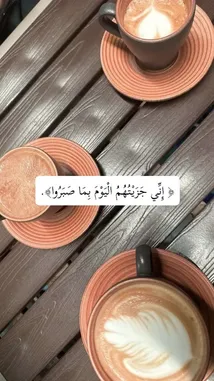 ﴿ إِنِّي جَزَيْتُهُمُ الْيَوْمَ بِمَا صَبَرُوا﴾.